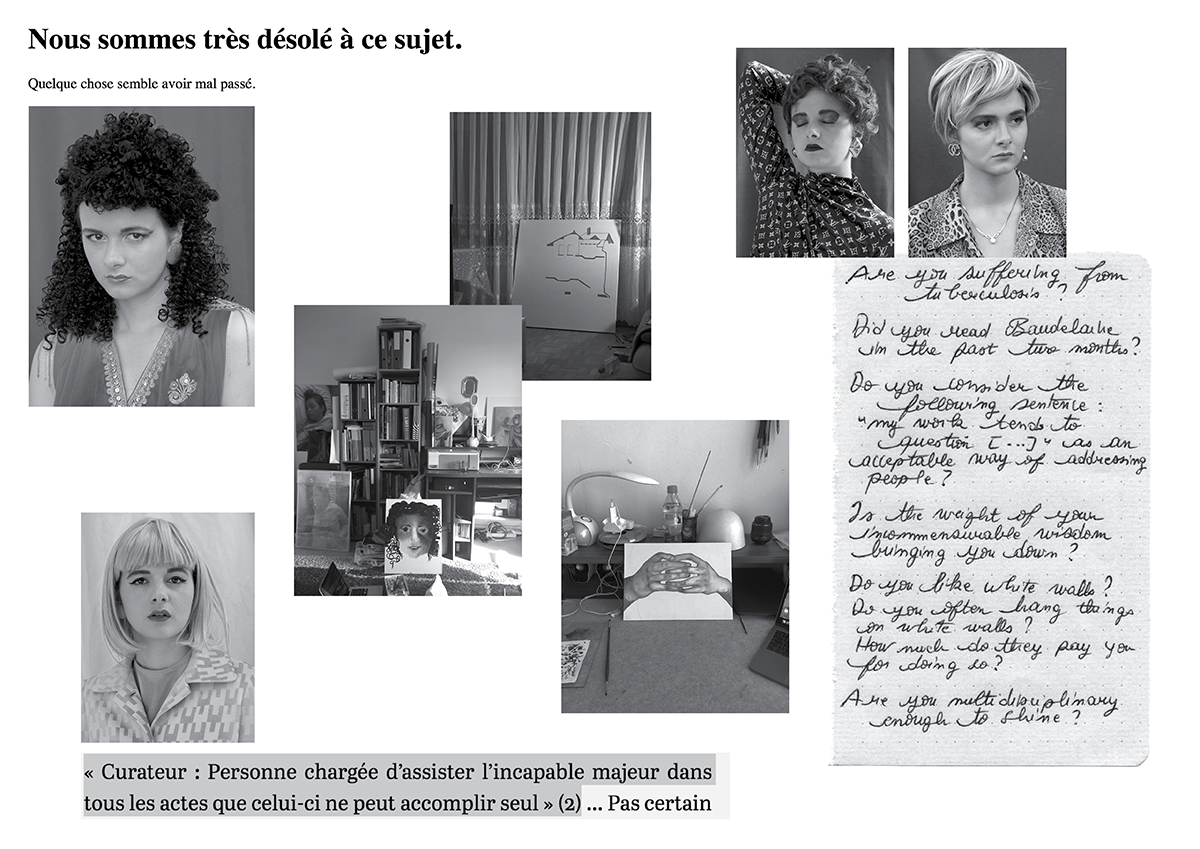 Nous sommes très désolé à ce sujet.
Quelque chose semble avoir mal passé.
Are you suffering from
tuberculosis ?
Did you read Baudelaire
in the past two months?
Do you consider the
following sentence :
"my work tends to
question [...]" as an
acceptable way of addressing
people ?
Is the weight of your
incommensurable wisdom
bringing you down ?
Do you like white walls ?
Do you often hang things
on white walls ?
How much do they pay you
for doing so?
Are you multidisciplinary
enough to shine ?
« Curateur : Personne chargée d’assister l’incapable majeur dans
tous les actes que celui-ci ne peut accomplir seul » (2) ... Pas certain